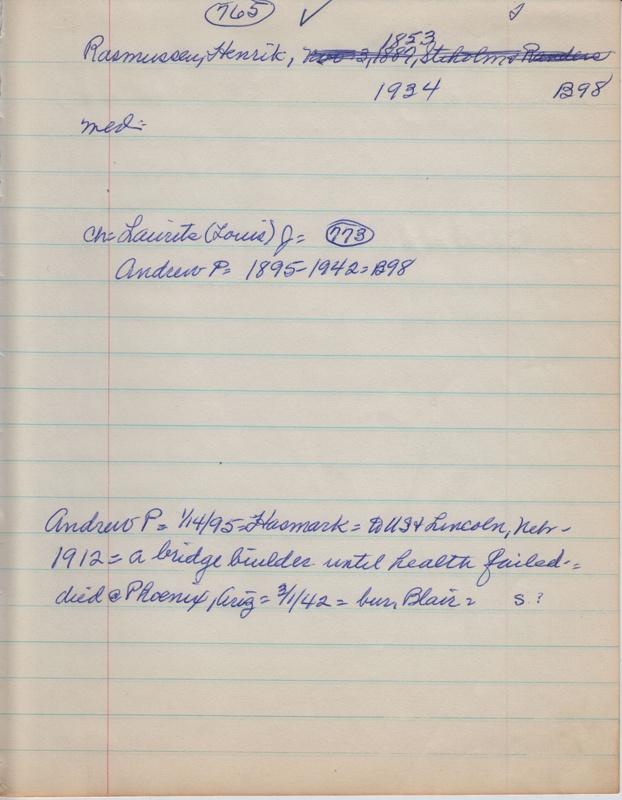 765 ✓
1853
Rasmussen, Henrik, Nov 3, 1887, Randers
1934 B98
med:-
ch= Laurits (Louis) J= 773
Andrew P= 1895-1942= B98
Andrew P= 1/14/95= Hasmark= to US & Lincoln, Nebr-
1912= a bridge builder until health failed-=
died @ Phoenix, Ariz= 3/1/42= bur, Blair= S ?